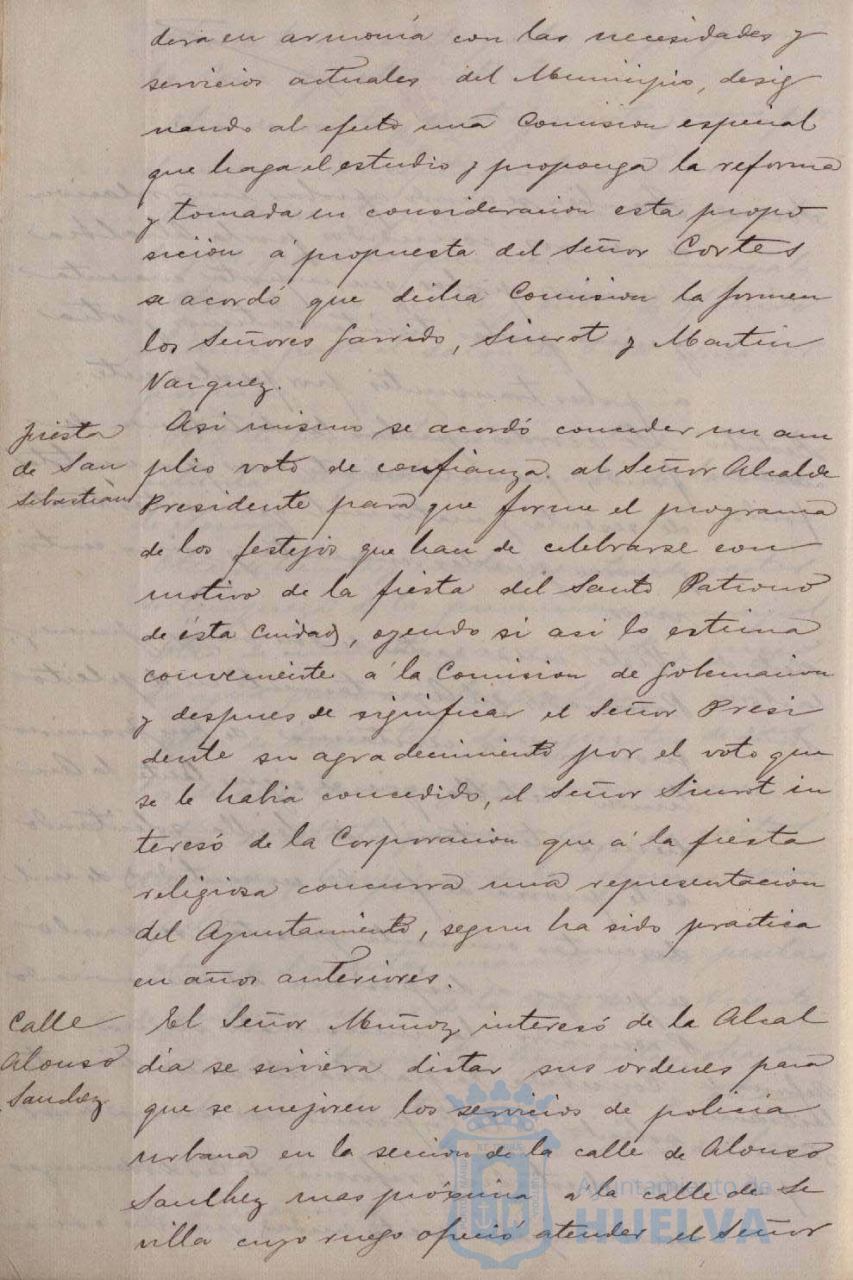 dera en armonía con las necesidades y
servicios actuales del Municipio, desig
nando al efecto una Comision especial
que haga el estudio y proponga la reforma
y tomada en consideracion esta propo
sicion á propuesta del Señor Cortes
se acordó que dicha Comision la formen
los Señores Garrido, Siurot y Martin
Vazquez.
fiesta
de San
Sebastián
Asi mismo se acordó conceder un am
plio voto de confianza al Señor Alcalde
Presidente para que forme el programa
de los festejos que han de celebrarse con
motivo de la fiesta del Santo Patrono
de ésta Cuidad, oyendo si asi lo estima
conveniente á la Comision de Gobernacion
y despues de significar el Señor Presi
dente su agradecimiento por el voto que
se le habia concedido, el Señor Siurot in
teresó de la Corporacion que á la fiesta
religiosa concurra una representacion
del Ayuntamiento, segun ha sido practica
en años anteriores.
Calle
Alonso
Sanchez
El Señor Muñoz interesó de la Alcal
día se sirviera dictar sus órdenes para
que se mejoren los servicios de policia
urbana en la seccion de la calle de Alonso
Sanchez mas próxima á la calle de Se
villa cuyo ruego ofreció atender el Señor
Ayuntamiento de
HUELVA